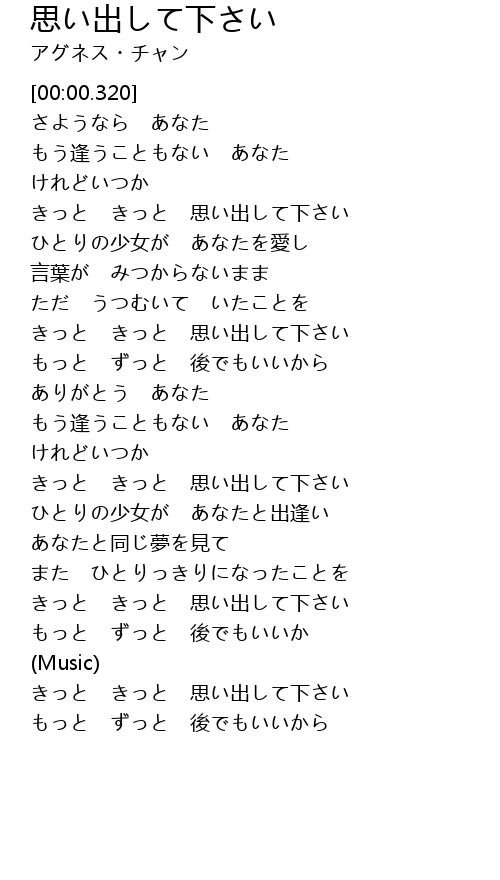 思い出して下さい
アグネス・チャン
[00:00.320]
さようなら　あなた
もう逢うこともない　あなた
けれどいつか
きっと　きっと　思い出して下さい
ひとりの少女が　あなたを愛し
言葉が　みつからないまま
ただ　うつむいて　いたことを
きっと　きっと　思い出して下さい
もっと　ずっと　後でもいいから
ありがとう　あなた
もう逢うこともない　あなた
けれどいつか
きっと　きっと　思い出して下さい
ひとりの少女が　あなたと出逢い
あなたと同じ夢を見て
また　ひとりっきりになったことを
きっと　きっと　思い出して下さい
もっと　ずっと　後でもいいか
(Music)
きっと　きっと　思い出して下さい
もっと　ずっと　後でもいいから